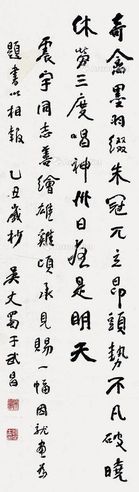 奇禽墨羽缀朱冠兀立昂头势不凡破晓
休劳三度唱神州日夜是明天
震宇同志善绘雄鸡顷承见赐一幅因就画意
题书以相报 乙丑岁杪 吴丈蜀于武昌